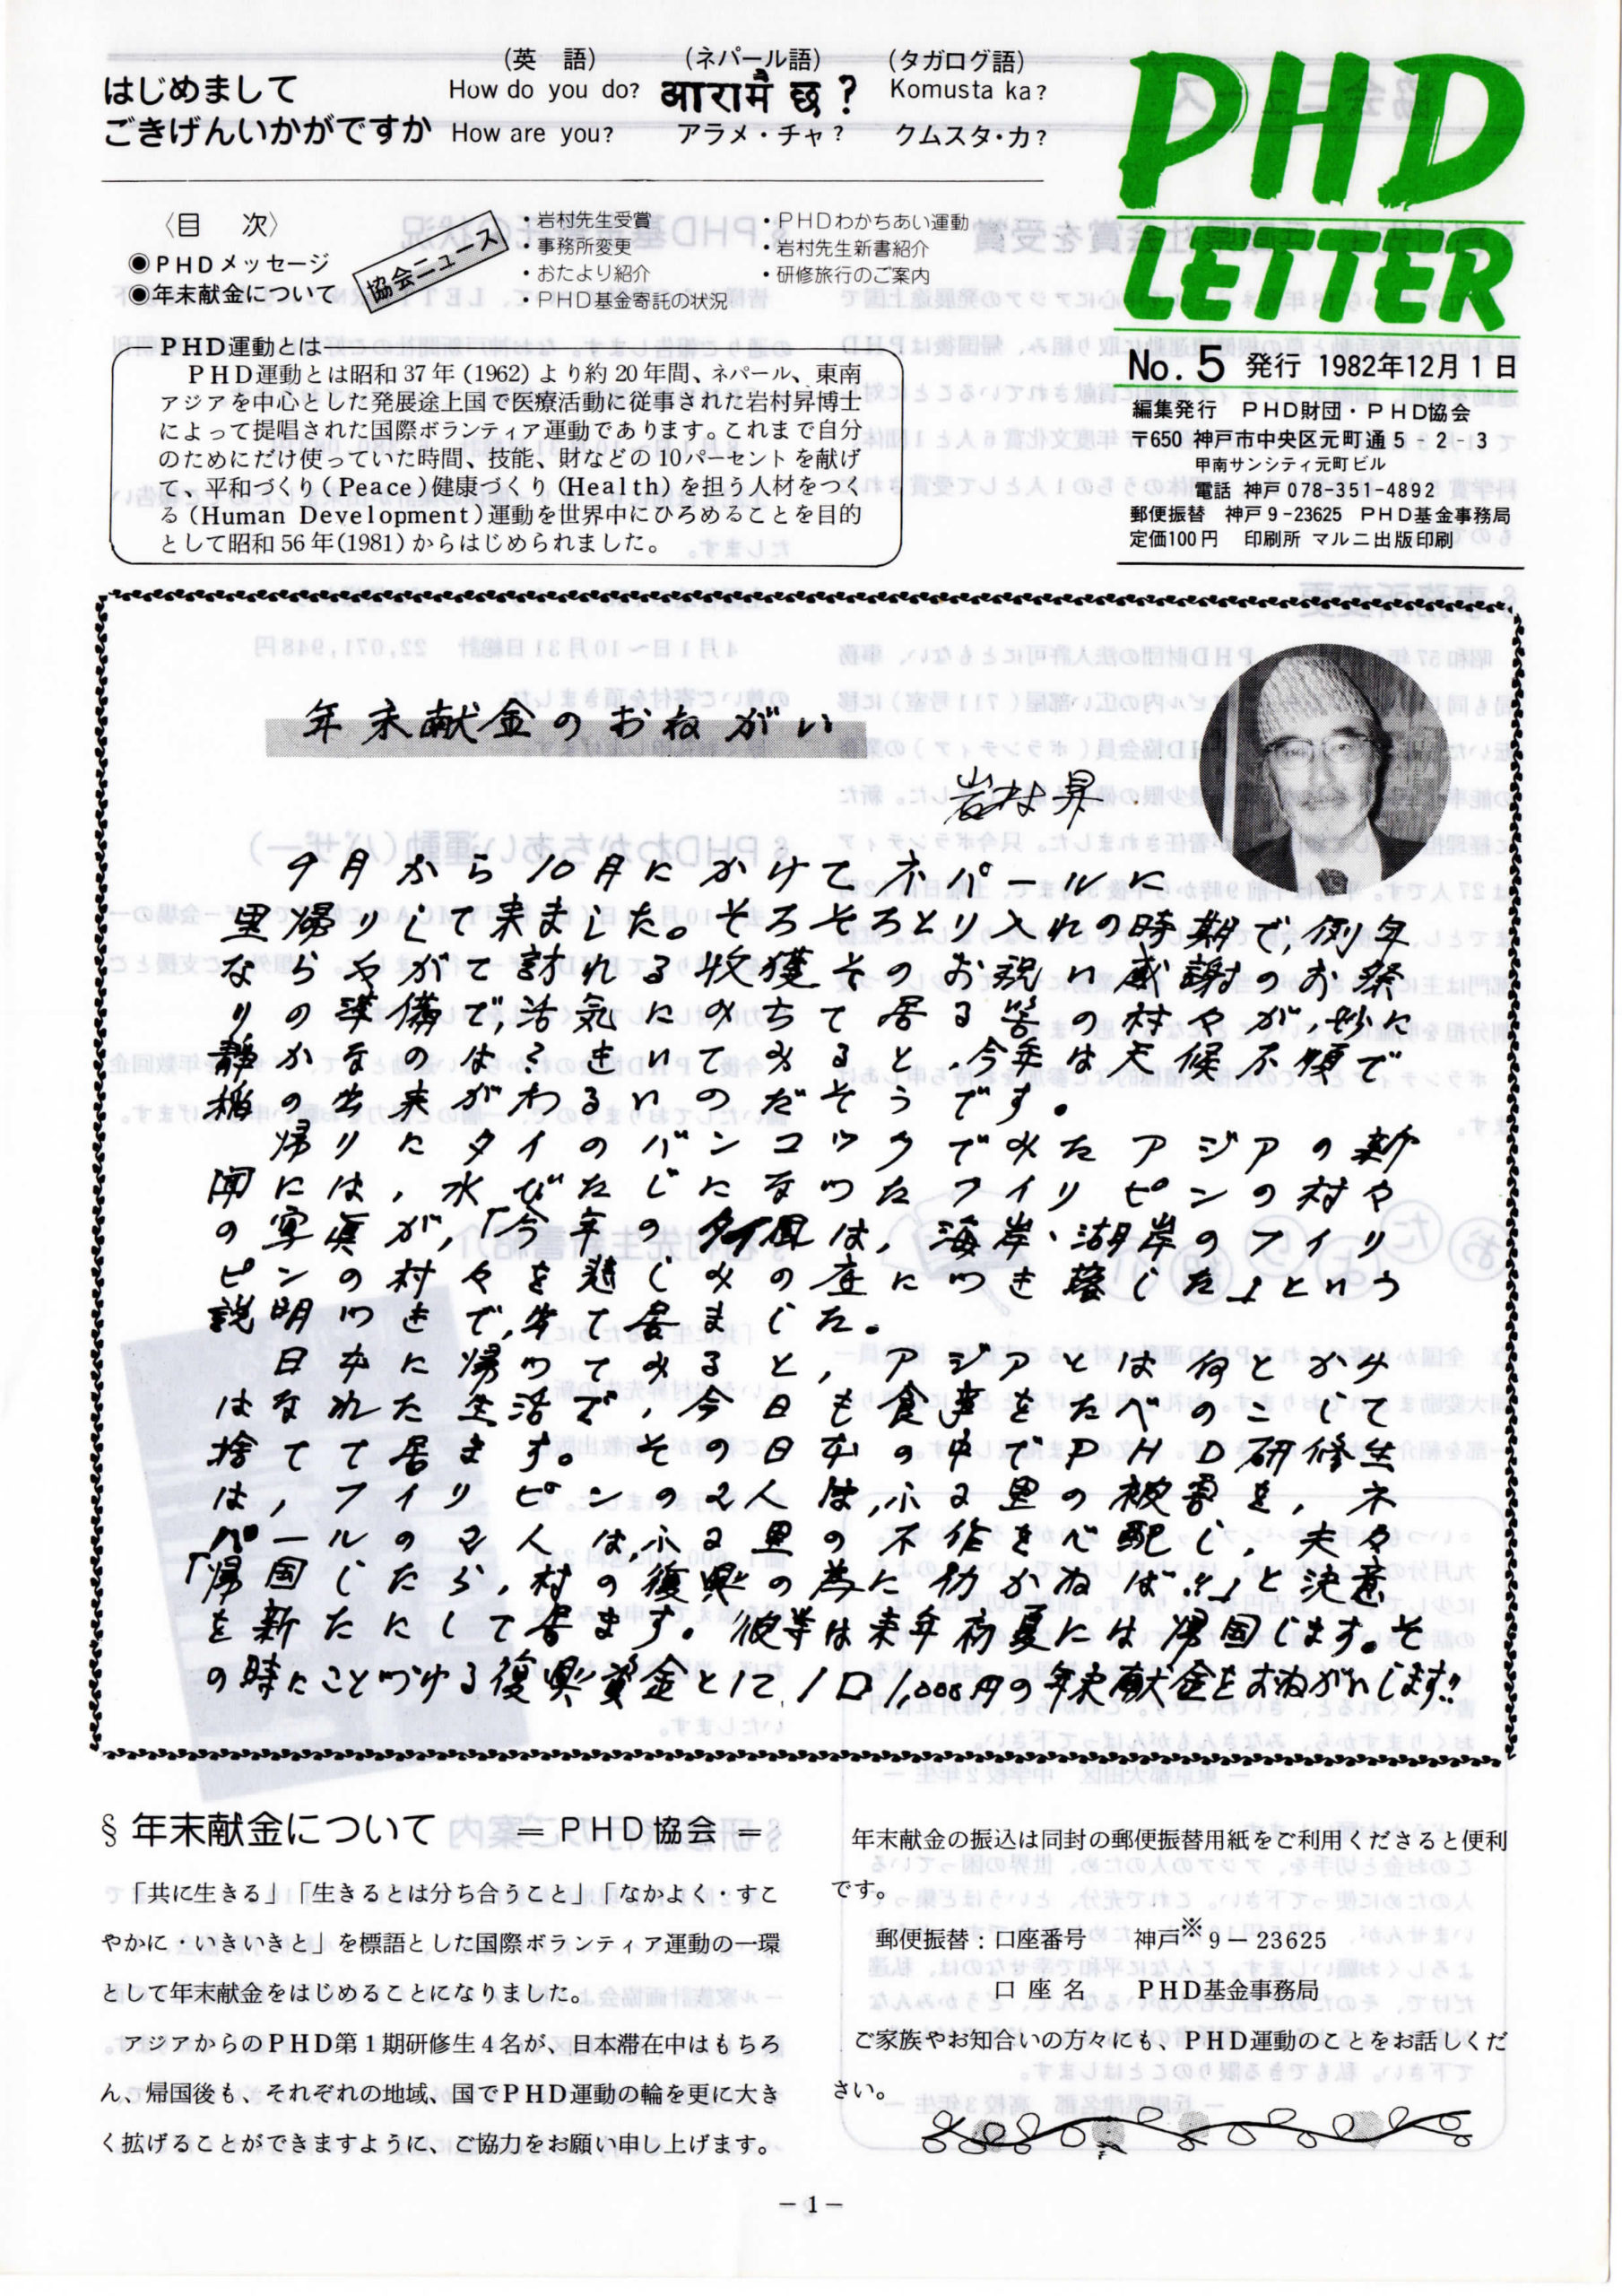 はじめまして
ごきげんいかがですか
(英　語)
How do you do?
How are you?
(ネパール語)
आरामै छ ?
アラメ・チャ?
(タガログ語)
Komusta ka?
クムスタ・カ?
PHD
LETTER
No. 5 発行 1982年12月1日
編集発行　PHD財団・PHD協会
〒650 神戸市中央区元町通5-2-3
甲南サンシティ元町ビル
電話 神戸078-351-4892
郵便振替　神戸9-23625　PHD基金事務局
定価100円　印刷所 マルニ出版印刷
〈目　次〉
◉PHDメッセージ
◉年末献金について
協会ニュース
・岩村先生受賞
・事務所変更
・おたより紹介
・PHD基金寄託の状況
・PHDわかちあい運動
・岩村先生新書紹介
・研修旅行のご案内
PHD運動とは
PHD運動とは昭和37年(1962)より約20年間、ネパール、東南
アジアを中心とした発展途上国で医療活動に従事された岩村昇博士
によって提唱された国際ボランティア運動であります。これまで自分
のためにだけ使っていた時間、技能、財などの10パーセントを献げ
て、平和づくり(Peace)健康づくり(Health)を担う人材をつく
る(Human Development)運動を世界中にひろめることを目的
として昭和56年(1981)からはじめられました。
年末献金のおねがい
岩村昇
9月から10月にかけてネパールに
里帰りして来ました。そろそろとり入れの時期で,例年
ならやがて訪れる収獲そのお祝い感謝のお祭
りの準備で,活気にみちて居る筈の村々が,妙に
静かなのは?きいてみると,今年は天候不順で
稲の出来がわるいのだそうです。
帰りにタイのバンコックでみたアジアの新
聞には,水びたしになったフイリピンの村々
の写真が,「今年の台風は,海岸、湖岸のフイリ
ピンの村々を悲しみの底につき落した」という
説明つきで,出て居ました。
日本に帰ってみると,アジアとは何とかけ
はなれた生活で,今日も食事をたべのこして
捨てて居ます。その日本の中でPHD研修生
は,フイリピンの2人は,ふる里の被害を,ネ
パールの2人は,ふる里の不作を心配し,夫々
「帰国したら,村の復興の為に仂かねば!!」と決意
を新たにして居ます。彼等は来年初夏には帰国します。そ
の時にことづける復興資金として,1口1,000円の年末献金をおねがいします!!
§ 年末献金について　＝PHD協会＝
「共に生きる」「生きるとは分ち合うこと」「なかよく・すこ
やかに・いきいきと」を標語とした国際ボランティア運動の一環
として年末献金をはじめることになりました。
アジアからのPHD第1期研修生4名が、日本滞在中はもちろ
ん、帰国後も、それぞれの地域、国でPHD運動の輪を更に大き
く拡げることができますように、ご協力をお願い申し上げます。
年末献金の振込は同封の郵便振替用紙をご利用くださると便利
です。
郵便振替：口座番号　神戸※9－23625
口座名　PHD基金事務局
ご家族やお知合いの方々にも、PHD運動のことをお話しくだ
さい。
－1－